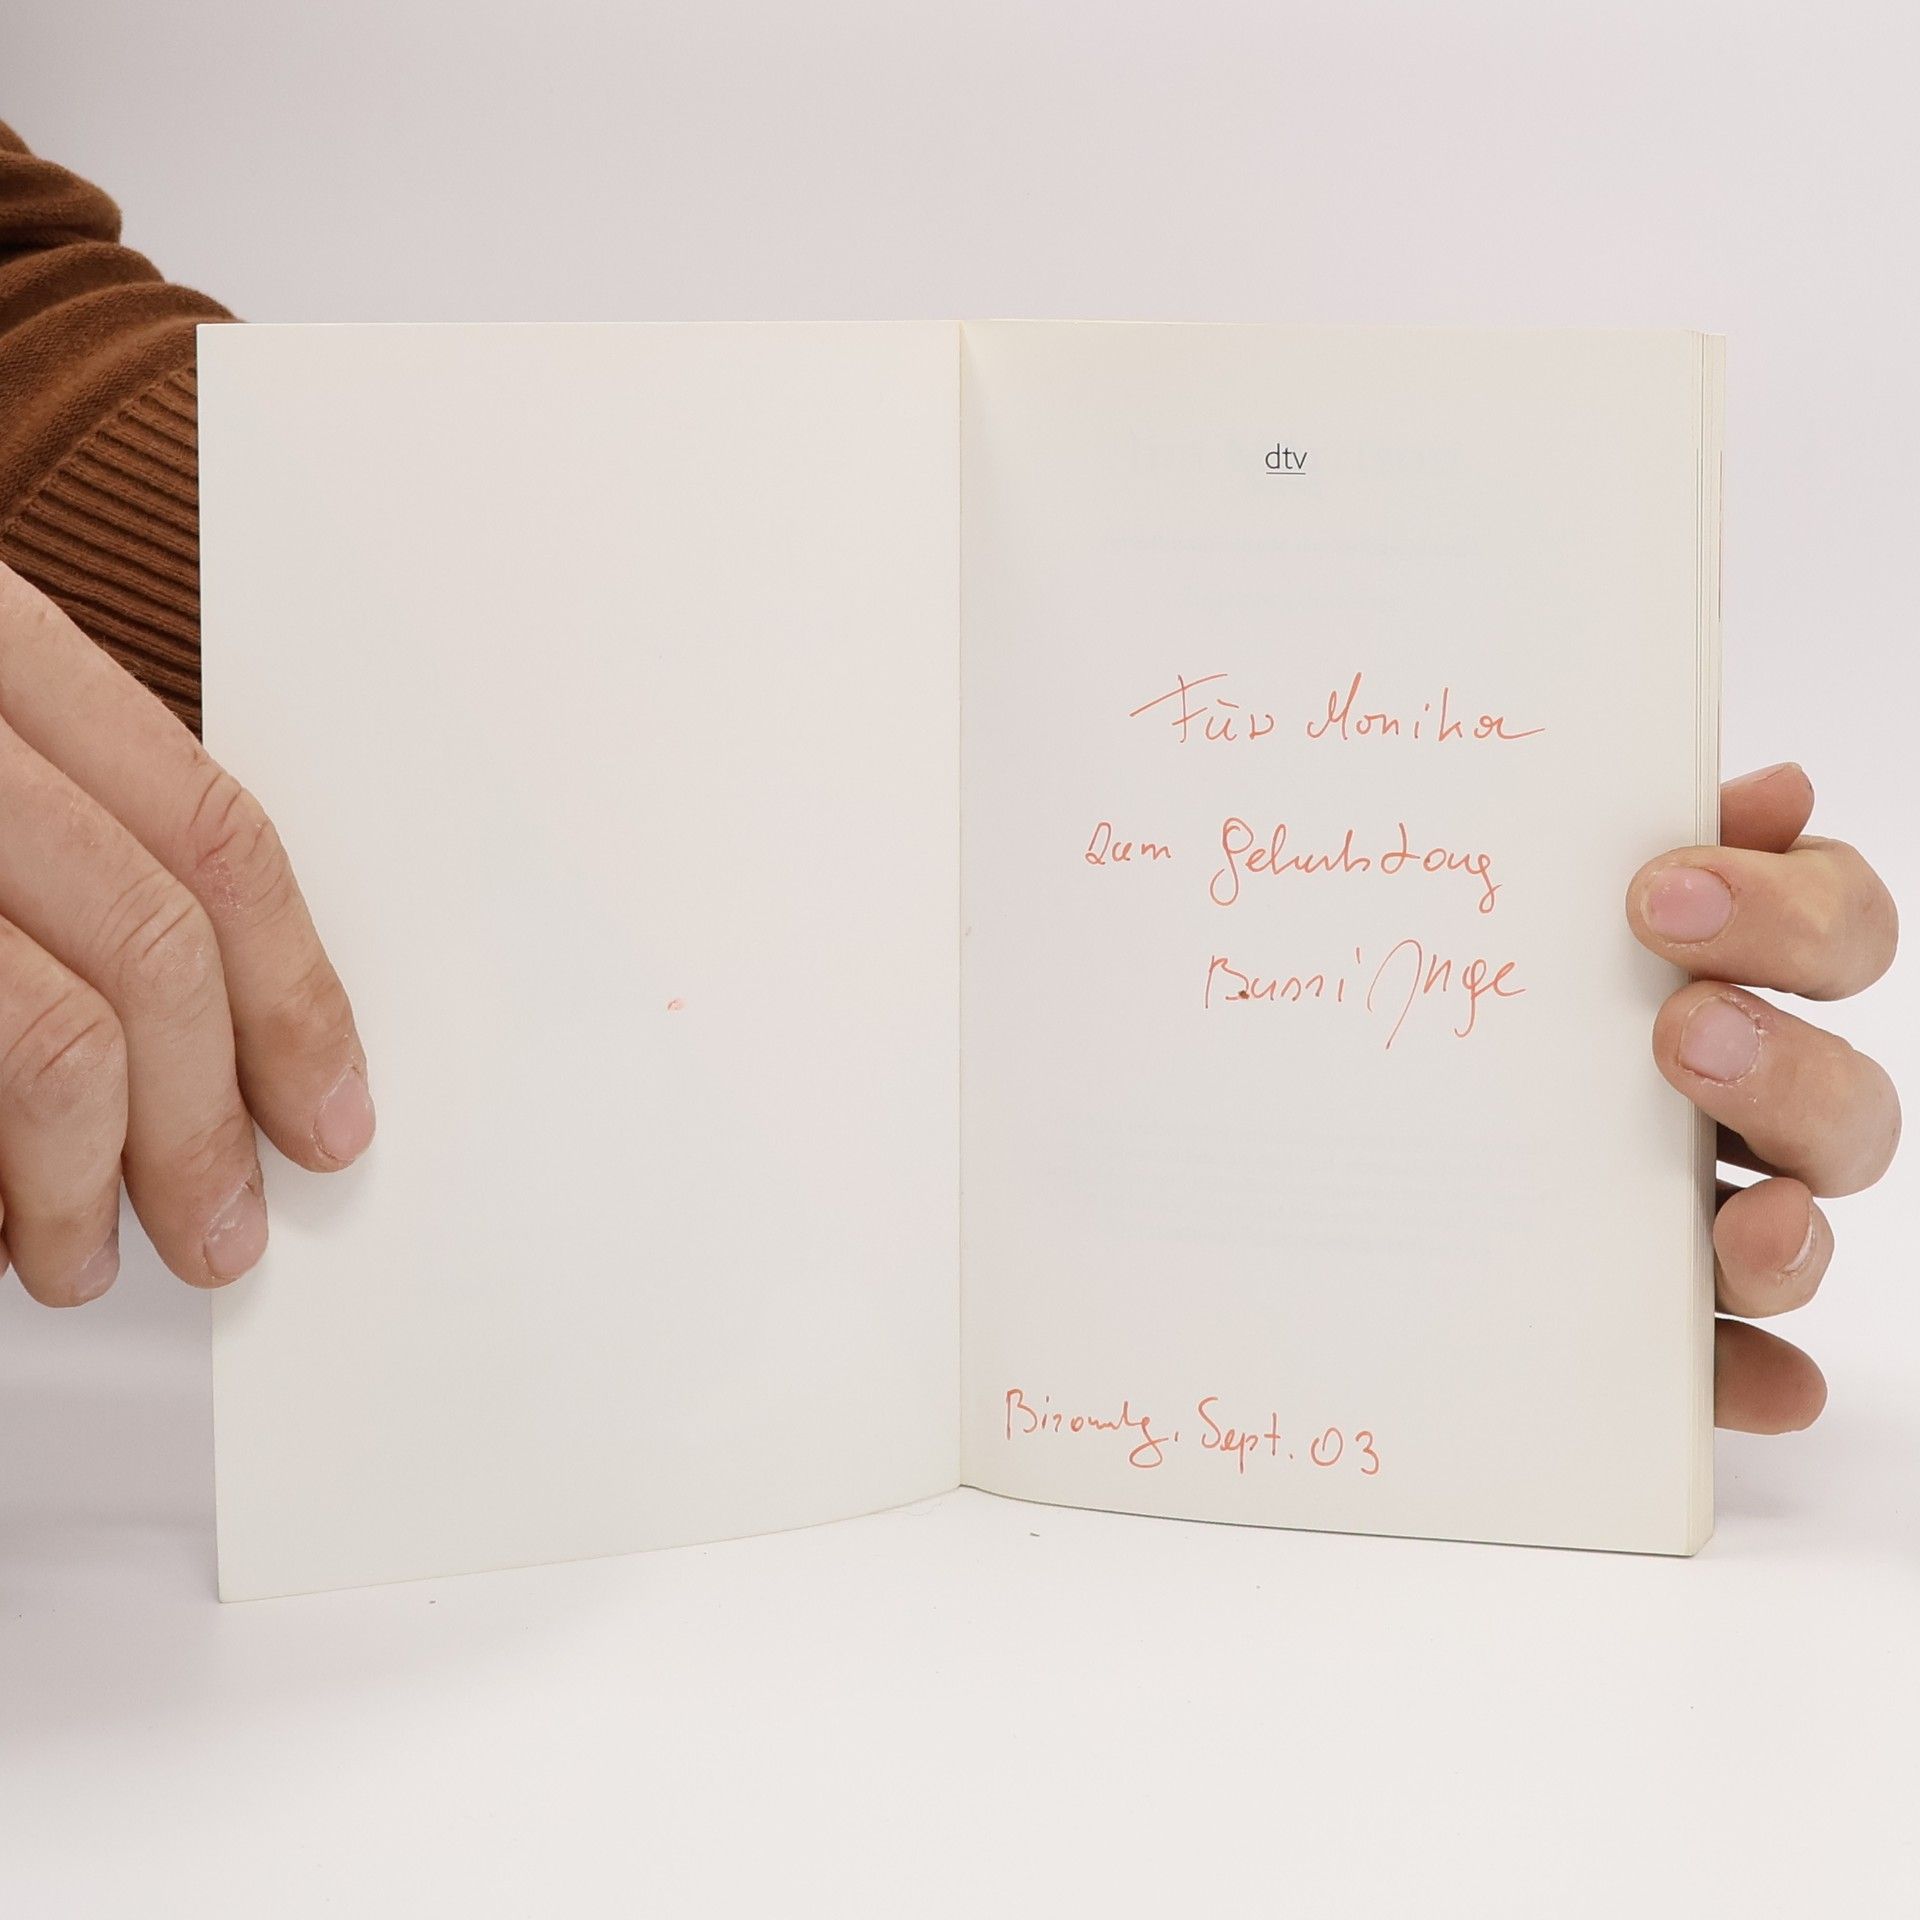 dtv
Für Monika
zum Geburtstag
Bussi Inge
Sept. 03